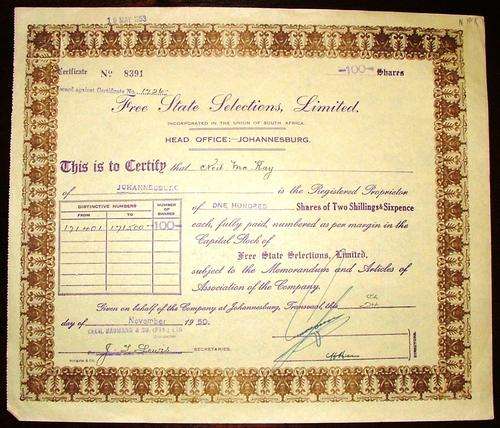 19 MAY 1953
Certificate No 8391
—100— Shares
Issued against Certificate No.
Free State Selections, Limited.
INCORPORATED IN THE UNION OF SOUTH AFRICA.
HEAD OFFICE:—JOHANNESBURG.
This is to Certify that Neil Mc Kay
of JOHANNESBURG is the Registered Proprietor
of ONE HUNDRED Shares of Two Shillings & Sixpence
each, fully paid, numbered as per margin in the
Capital Stock of
Free State Selections, Limited,
subject to the Memorandum and Articles of
Association of the Company.
DISTINCTIVE NUMBERS
FROM TO
NUMBER OF SHARES
171401 171500 —100—
Given on behalf of the Company at Johannesburg, Transvaal, this
day of November 1950.
J. F. Lewis SECRETARIES.
DIRECTORS.